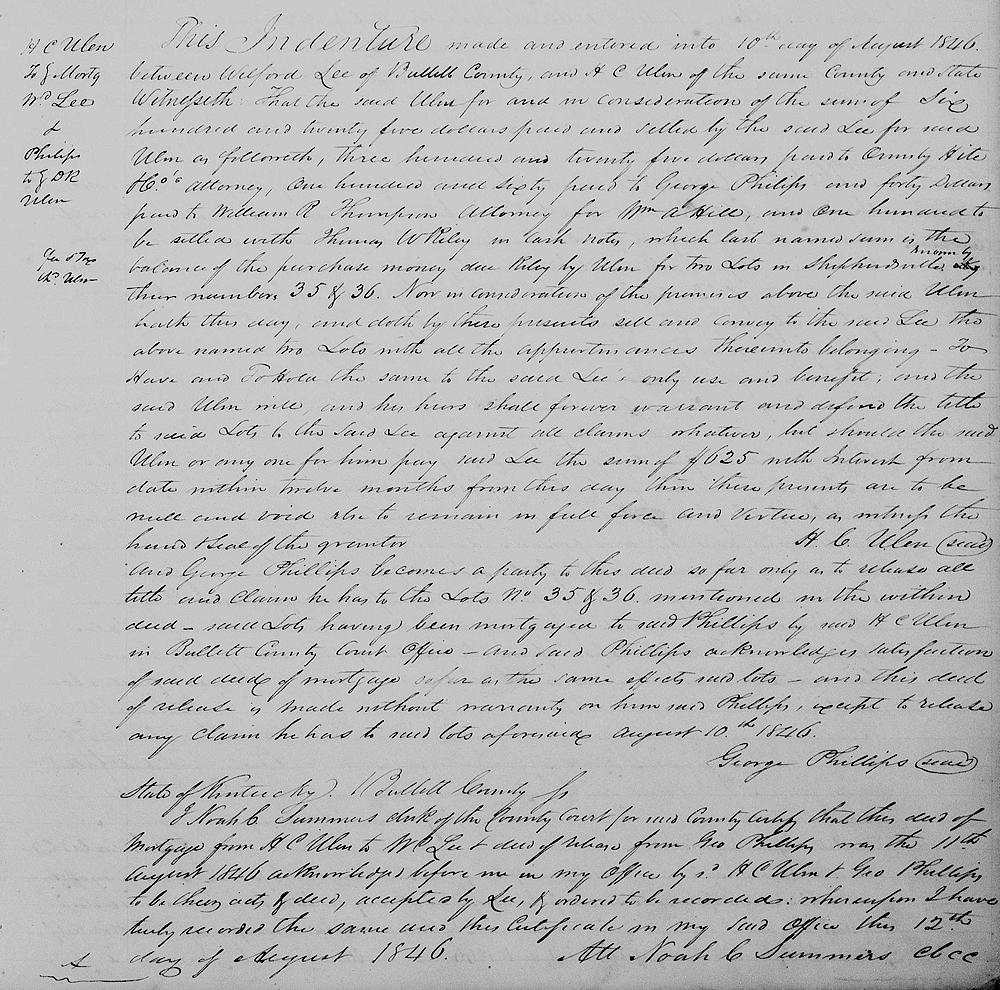 H C Ulen
To } Mortg
Wd Lee
&
Philips
to } DR
Ulen
This Indenture made and entered into 10th day of August 1846.
between Welford Lee of Bullitt County, and H C Ulen of the same County and State
Witnesseth. That the said Ulen for and in consideration of the sum of Six
hundred and twenty five dollars paid and setled by the said Lee for said
Ulen as followeth, three hundred and twenty five dollars paid to Ormsby Hite
& Co's attorney, One hundred and sixty paid to George Philips and forty Dollars
paid to William R Thompson Attorney for Wm A Hill, and One hundred to
be setled with Thomas W Riley in cash notes, which last named sum is the
balance of the purchase money due Riley by Ulen for two Lots in Shepherdsville known by
their numbers 35 & 36. Now in consideration of the premises above the said Ulen
hath this day, and doth by these presents sell and convey to the said Lee the
above named two Lots with all the appurtinances thereunto belonging - To
Have and To Hold the same to the said Lee's only use and benefit; and the
said Ulen will, and his heirs shall forever warrant and defend the title
to said Lots to the said Lee against all claims whatever, but should the said
Ulen or any one for him pay said Lee the sum of $625 with Interest from
date within twelve months from this day then these presents are to be
null and void else to remain in full force and virtue, as witness the
hand & seal of the grantor H. C. Ulen (seal)
And George Phillips becomes a party to this deed so far only as to release all
title and claim he has to the Lots No 35 & 36. mentioned in the within
deed - said Lots having been mortgaged to said Phillips by said H C Ulen
in Bullitt County Court Office - and said Phillips acknowledges satisfaction
of said deed of mortgage so far as the same effects said lots - and this deed
of release is made without warranty on him said Phillips, except to release
any claim he has to said lots aforesaid August 10.th 1846.
George Phillips (seal)
State of Kentucky } Bullitt County ss
I Noah C Summers clerk of the County Court for said County Certify that this deed of
Mortgage from H C Ulen to Wd Lee & deed of release from Geo Phillips was the 11th
August 1846 acknowledged before me in my office by sd H C Ulen & Geo Phillips
to be their acts & deed, accepted by Lee, & ordered to be recorded: whereupon I have
truly recorded the same and this Certificate in my said Office this 12th
day of August 1846. Att Noah C Summers cbcc